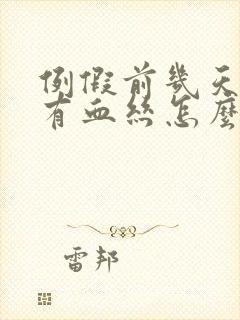 例假前幾天
有血絲怎麼
雷邦